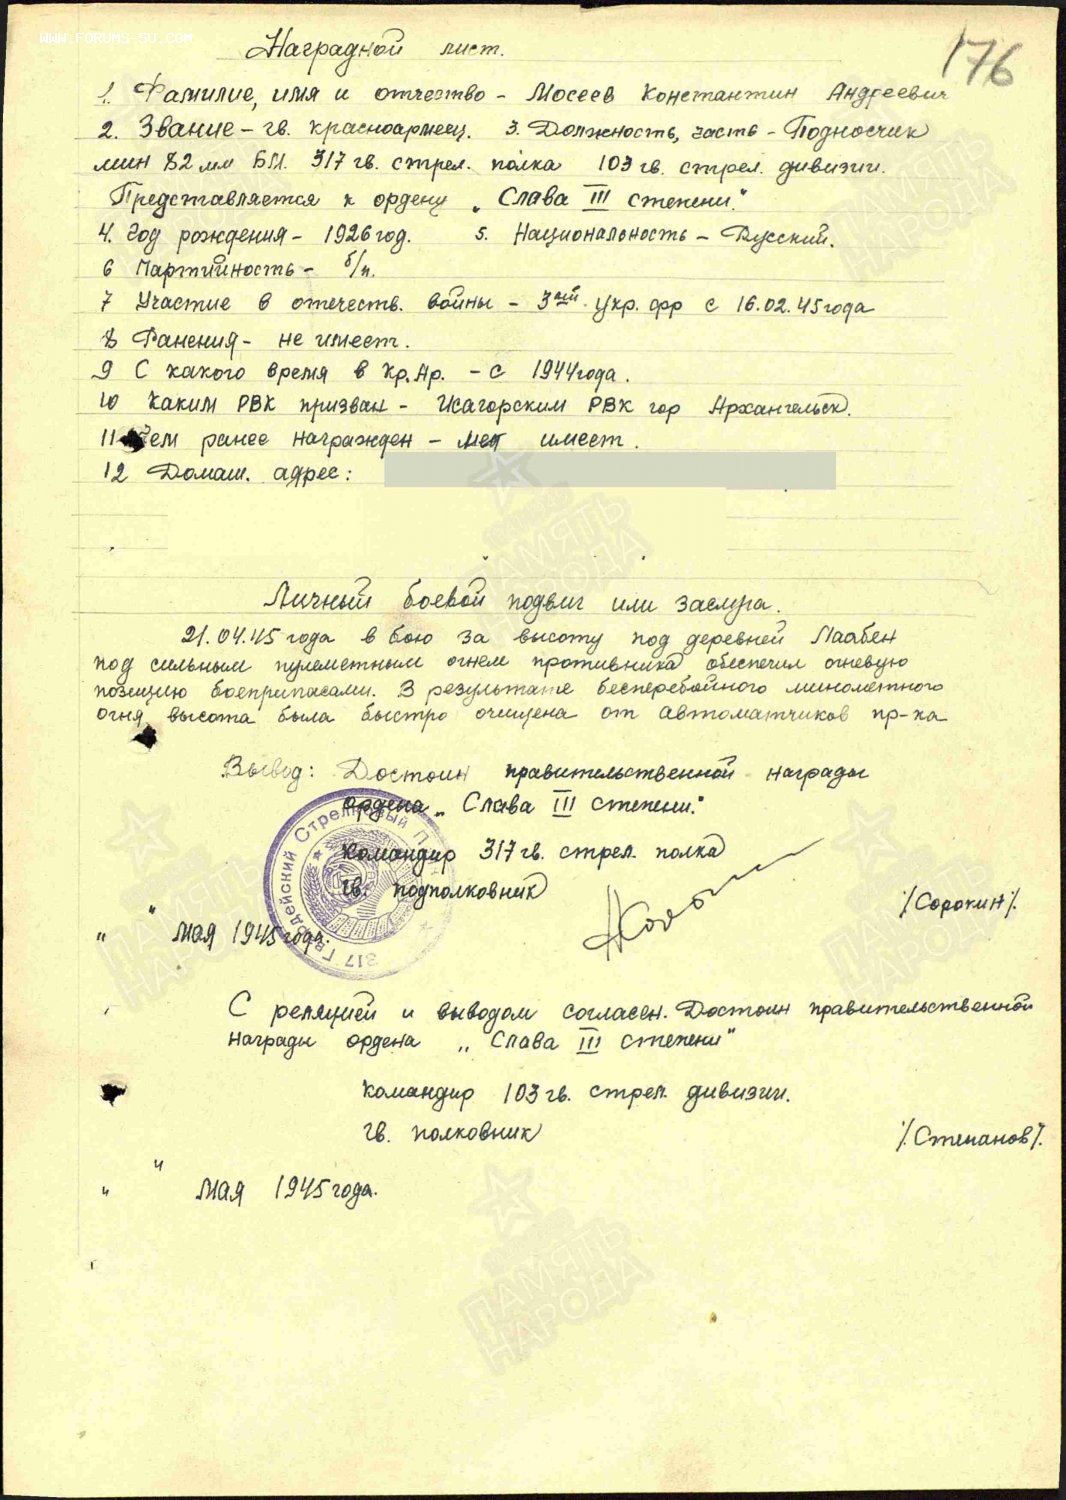 WWW.FORUMS-SU.COM
176
Наградной лист.
1. Фамилие, имя и отчество - Мосеев Константин Андреевич
2. Звание - гв. красноармеец. 3. Должность, часть - Подносчик
мин 82 мм БМ. 317 гв. стрел. полка 103 гв. стрел. дивизии.
Представляется к ордену „Слава III степени."
4. Год рождения - 1926 год. 5. Национальность - Русский.
6 Партийность - б/п.
7 Участие в отечеств. войны - 3ий Укр. фр с 16.02.45 года
8 Ранения - не имеет.
9 С какого время в Кр. Ар. - с 1944 года.
10 Каким РВК призван - Исагорским РВК гор Архангельск.
11 Чем ранее награжден - имеет.
12 Домаш. адрес:
Личный боевой подвиг или заслуга.
21.04.45 года в бою за высоту под деревней Лаабен
под сильным пулеметным огнем противника обеспечил огневую
позицию боеприпасами. В результате бесперебойного минометного
огня высота была быстро очищена от автоматчиков пр-ка
Вывод: Достоин правительственной награды
ордена „Слава III степени."
Командир 317 гв. стрел. полка
гв. подполковник /Сорокин/.
" " мая 1945 года.
317 Гвардейский Стрелковый П
С реляцией и выводом согласен. Достоин правительственной
награды ордена „Слава III степени"
Командир 103 гв. стрел. дивизии.
гв. полковник /Степанов/.
" " мая 1945 года.
ПАМЯТЬ НАРОДА